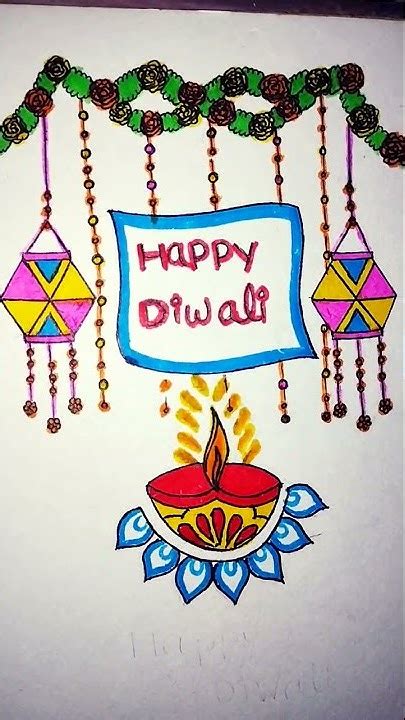 Happy
Diwali
Happy
Diwali